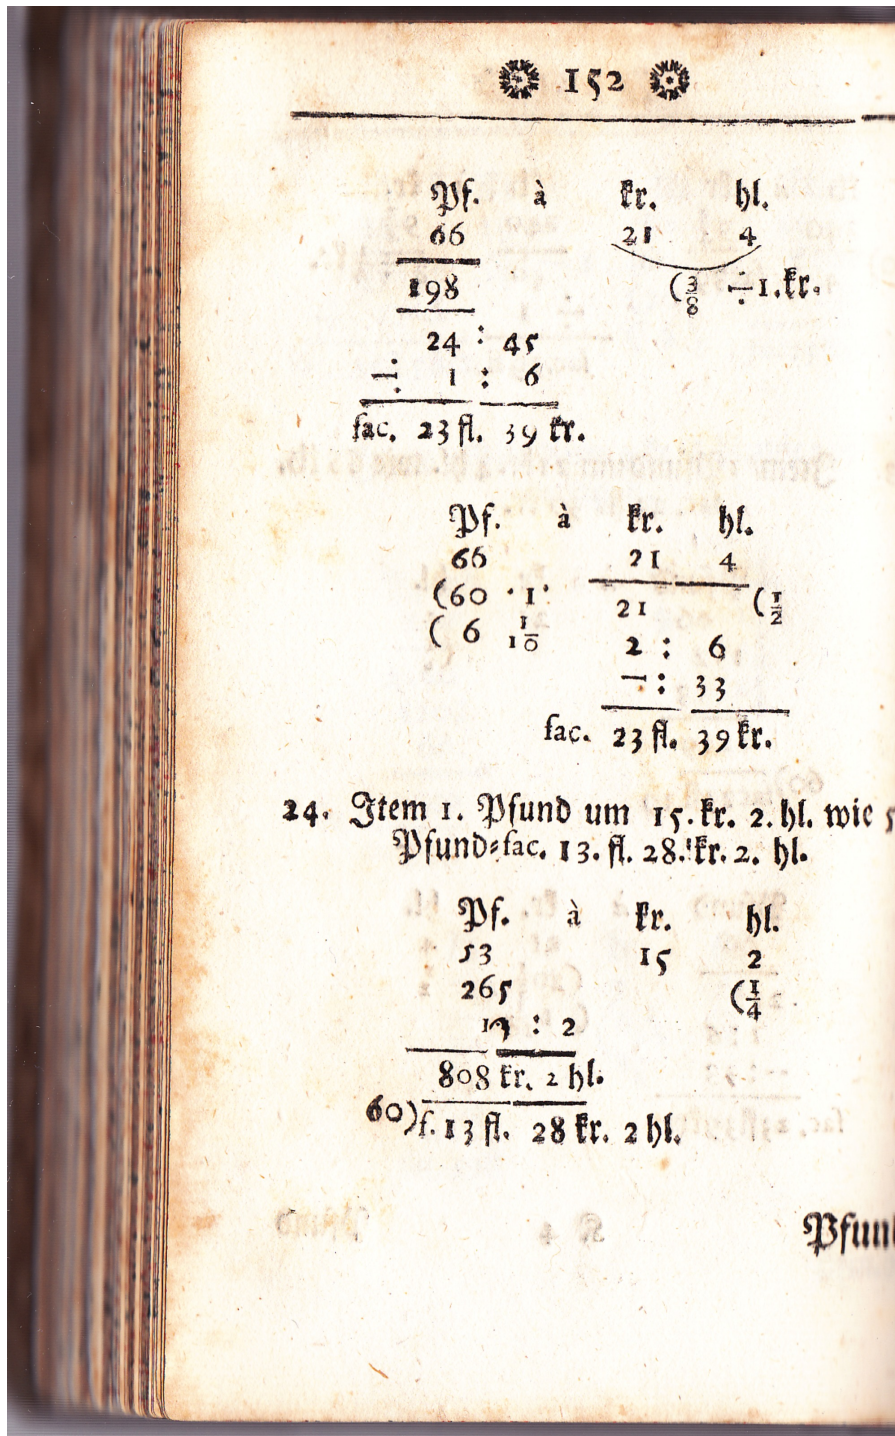 152
Pf. à kr. hl.
66 21 4
198 (3/8 ÷ 1. kr.
24 : 45
÷ 1 : 6
fac. 23 fl. 39 kr.
Pf. à kr. hl.
66 21 4
(60 · 1 · 21 (1/2
( 6 1/10 2 : 6
— : 33
fac. 23 fl. 39 kr.
24. Item 1. Pfund um 15. kr. 2. hl. wie
Pfund⸗fac. 13. fl. 28. kr. 2. hl.
Pf. à kr. hl.
53 15 2
265 (1/4
13 : 2
808 kr. 2 hl.
60) f. 13 fl. 28 kr. 2 hl.